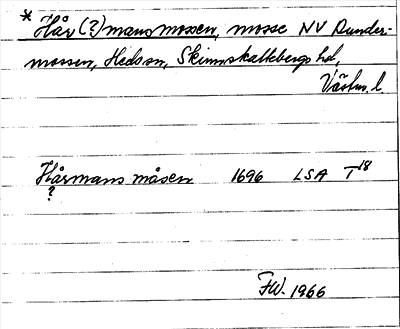 * Hår(?)mansmossen, mosse NV Dunder-
mossen, Hedsn, Skinnskattebergs hd,
Västm. l.
Hårmans måsen 1696 LSA T18
?
FW. 1966